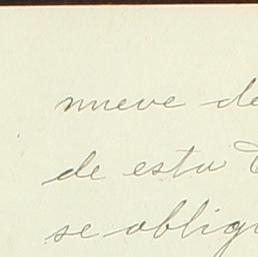 nueve de
de esta
se oblig